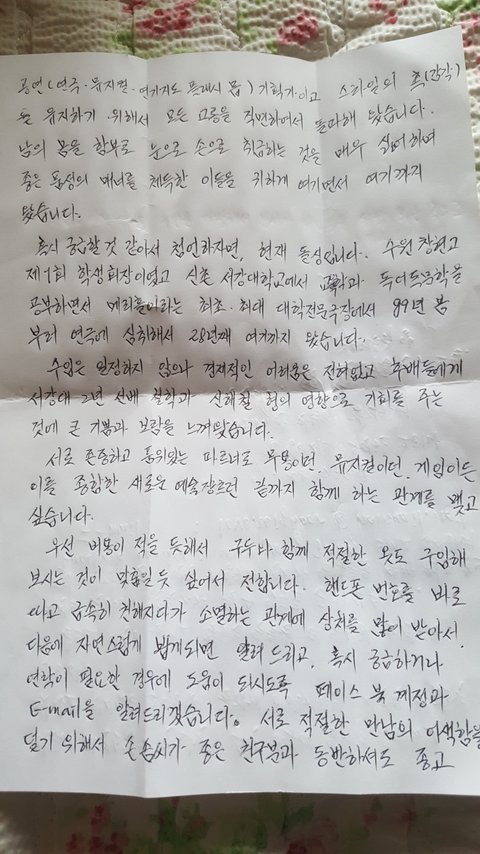 공연(연극·뮤지컬·연기지도 플래시 몹) 기획가이고 스타일의 촉(감각)
을 유지하기 위해서 모든 고통을 직면하여서 돌파해 왔습니다.
남의 몸을 함부로 눈으로 손으로 취급하는 것을 매우 싫어하며
좋은 품성의 매너를 체득한 이들을 귀하게 여기면서 여기까지
왔습니다.
혹시 궁금할 것 같아서 첨언하자면, 현재 돌싱입니다. 수원 창현고
제1회 학생회장이었고 신촌 서강대학교에서 철학과 독어독문학을
공부하면서 메리홀이라는 최초·최대 대학전문극장에서 89년 봄
부터 연극에 심취해서 28년째 여기까지 왔습니다.
수입은 일정하지 않으나 경제적인 어려움은 전혀없고 후배들에게
서강대 2년 선배 철학과 신해철 형의 영향으로 기회를 주는
것에 큰 기쁨과 보람을 느껴왔습니다.
서로 존중하고 품위있는 파트너로 무용이던, 뮤지컬이던, 게임이든
이를 종합한 새로운 예술장르던 끝까지 함께 하는 관계를 맺고
싶습니다.
우선 비용이 적을 듯해서 구두나 함께 적절한 옷도 구입해
보시는 것이 맞춤일 듯 싶어서 전합니다. 핸드폰 번호를 바로
따고 급속히 친해지다가 소멸하는 관계에 상처를 많이 받아서
다음에 자연스럽게 뵙게되면 알려 드리고, 혹시 궁금하거나
연락이 필요한 경우에 도움이 되시도록 페이스 북 계정과
E-mail을 알려드리겠습니다. 서로 적절한 만남의 어색함을
덜기 위해서 손솜씨가 좋은 친구분과 동반하셔도 좋고